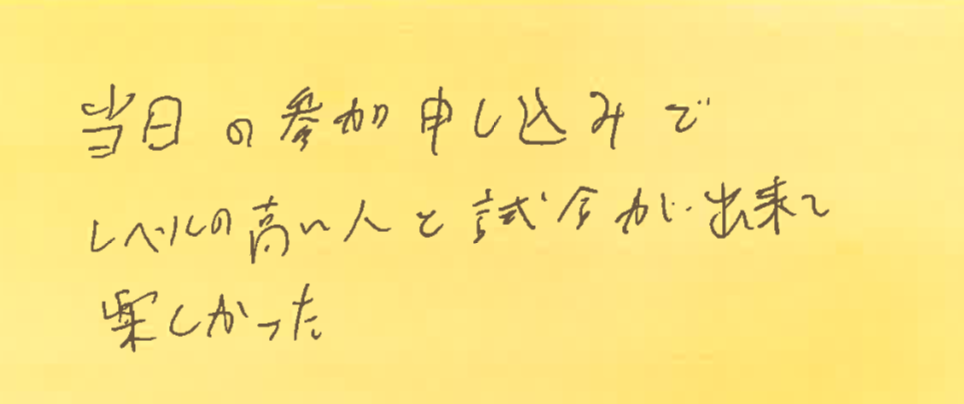 当日の参加申し込みで
レベルの高い人と試合が出来て
楽しかった